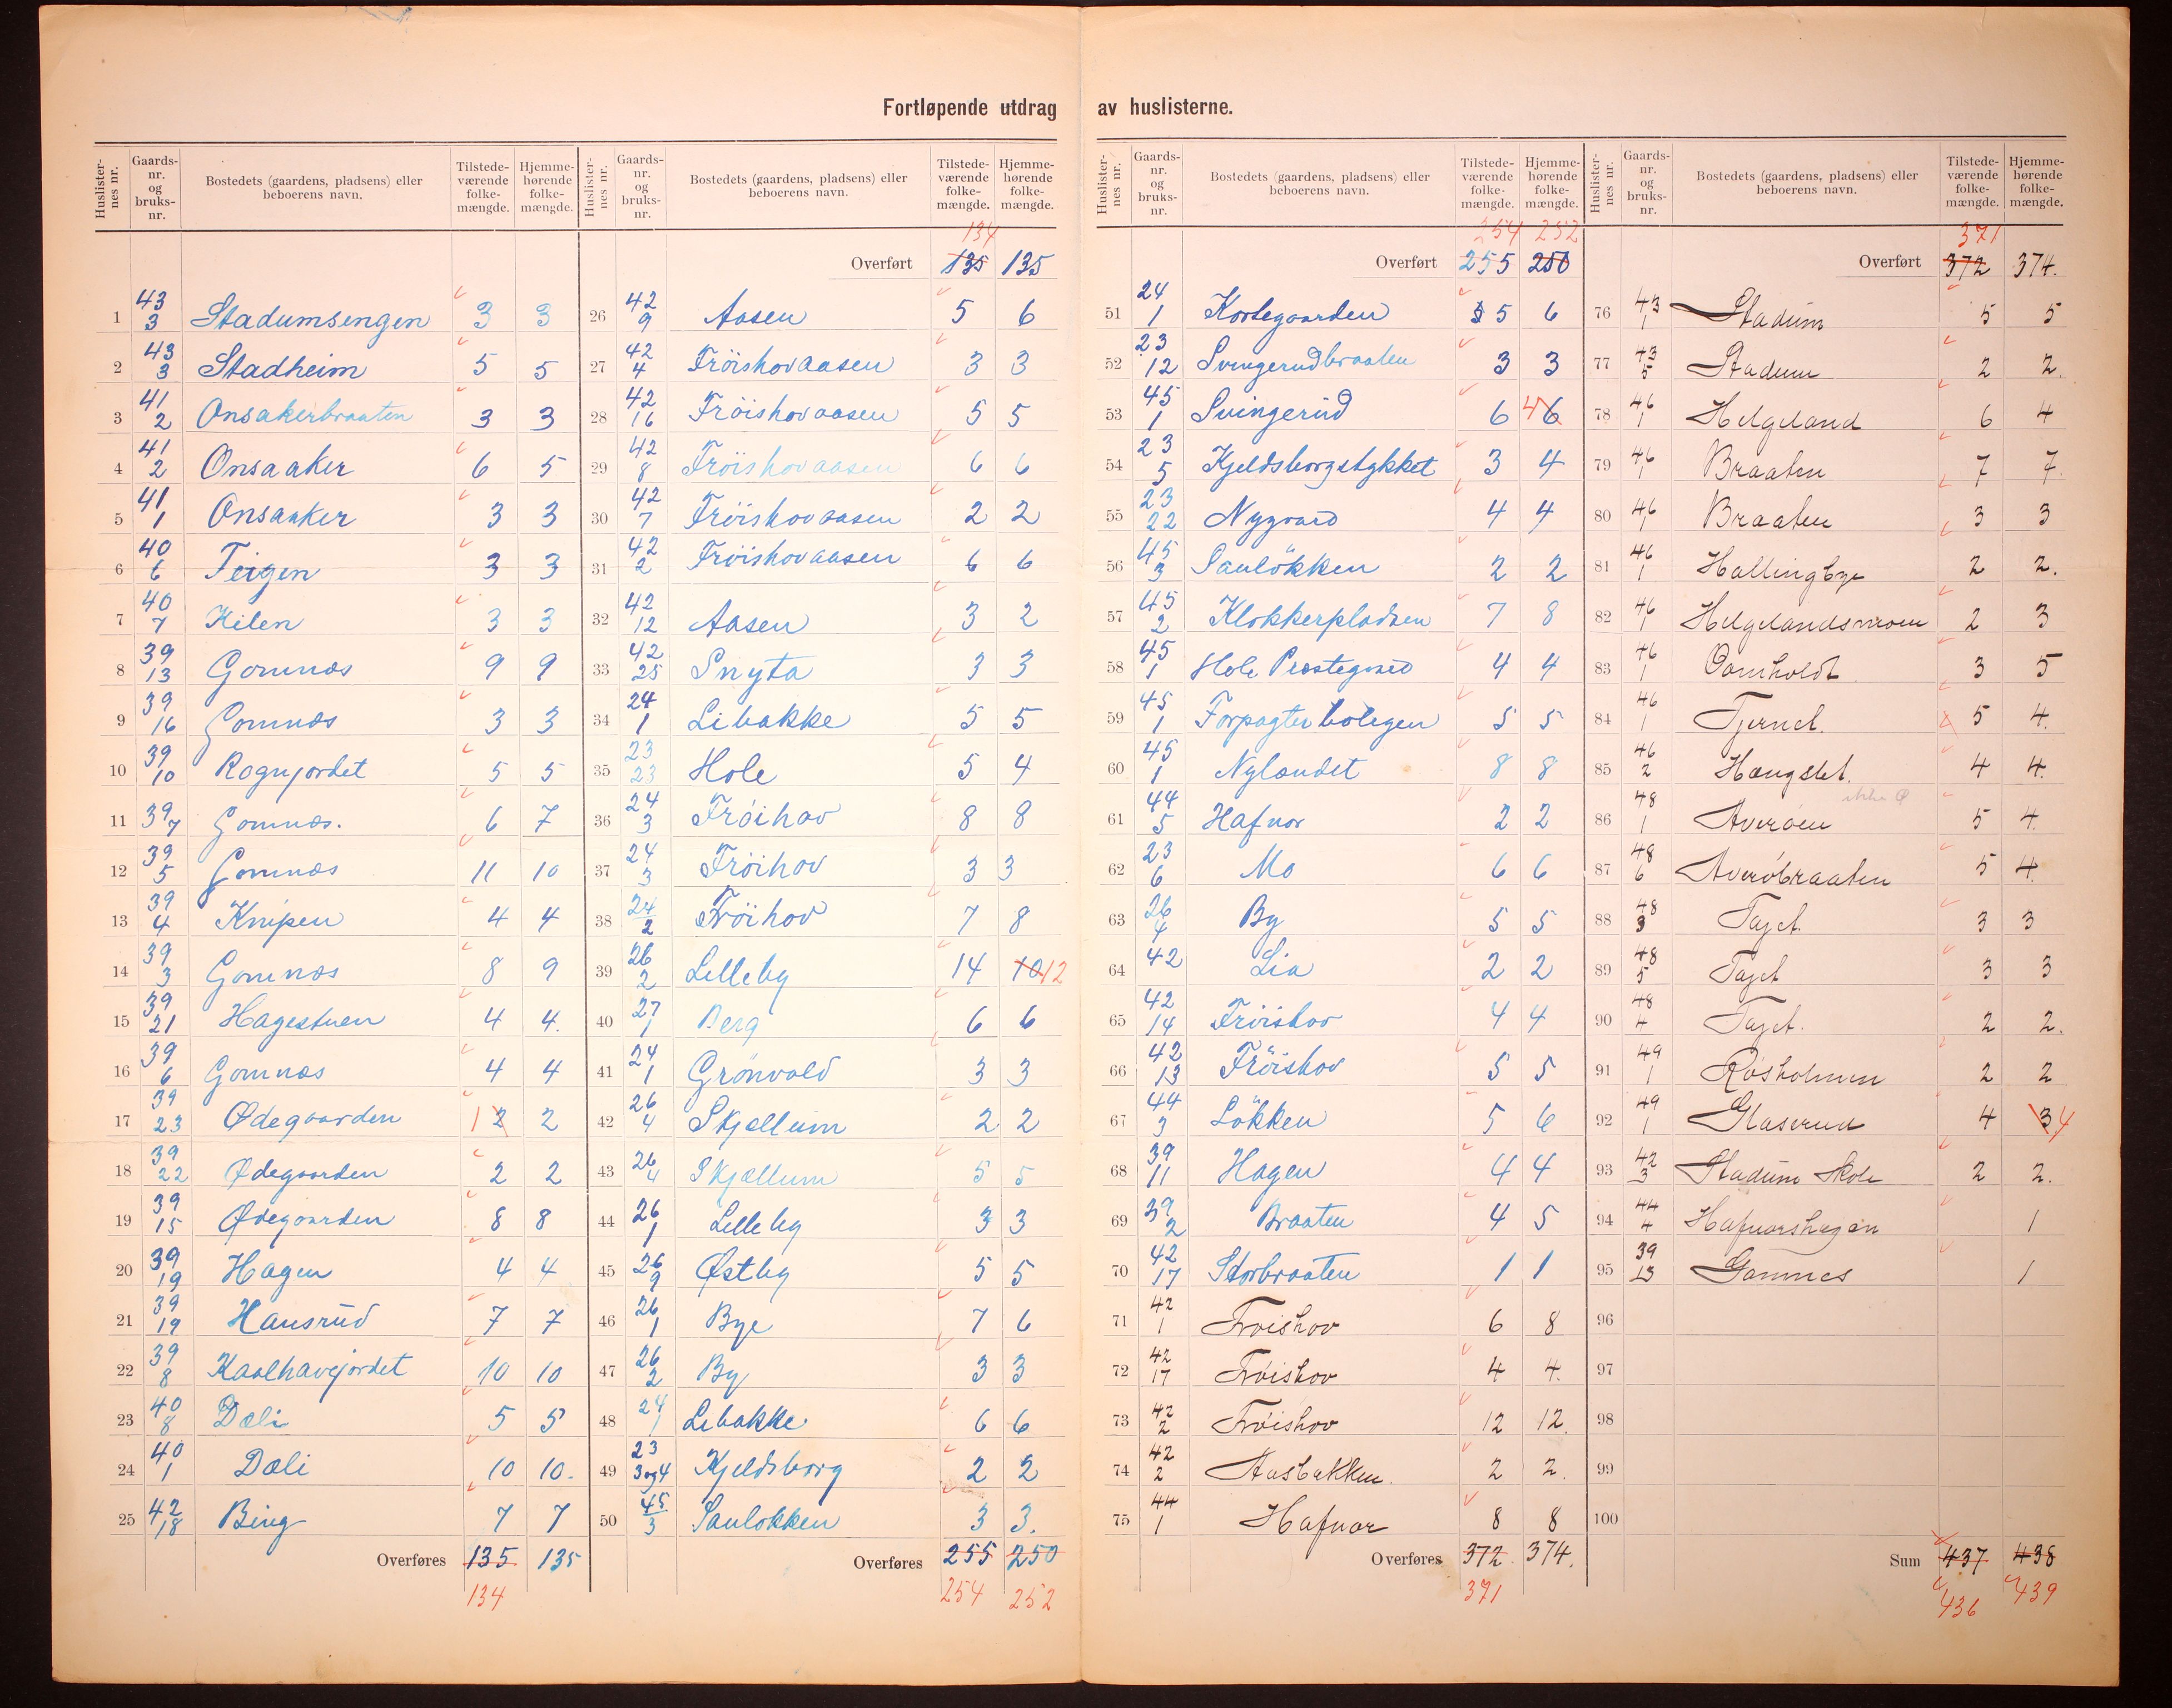 Fortløpende utdrag av huslisterne.
Huslisternes nr. Gaards-nr. og bruks-nr. Bostedets (gaardens, pladsens) eller beboerens navn. Tilstede-værende folke-mængde. Hjemme-hørende folke-mængde.
1 43/3 Stadumsengen 3 3
2 43/3 Stadheim 5 5
3 41/2 Onsakerbraaten 3 3
4 41/2 Onsaaker 6 5
5 41/1 Onsaaker 3 3
6 40/6 Teigen 3 3
7 40/7 Kilen 3 3
8 39/13 Gomnæs 9 9
9 39/16 Gomnæs 3 3
10 39/10 Rognjordet 5 5
11 39/7 Gomnæs. 6 7
12 39/5 Gomnæs 11 10
13 39/4 Knipen 4 4
14 39/3 Gomnæs 8 9
15 39/21 Hagestuen 4 4.
16 39/6 Gomnæs 4 4
17 39/23 Ødegaarden 1 2 2
18 39/22 Ødegaarden 2 2
19 39/15 Ødegaarden 8 8
20 39/19 Hagen 4 4
21 39/19 Hansrud 7 7
22 39/8 Kaalhavejordet 10 10
23 40/8 Dæli 5 5
24 40/1 Dæli 10 10.
25 42/18 Bing 7 7
Overføres 135 135
134
Huslisternes nr. Gaards-nr. og bruks-nr. Bostedets (gaardens, pladsens) eller beboerens navn. Tilstede-værende folke-mængde. Hjemme-hørende folke-mængde.
134
Overført 135 135
26 42/9 Aasen 5 6
27 42/4 Fröishovaasen 3 3
28 42/16 Fröishovaasen 5 5
29 42/8 Fröishovaasen 6 6
30 42/7 Fröishovaasen 2 2
31 42/2 Fröishovaasen 6 6
32 42/12 Aasen 3 2
33 42/25 Snyta 3 3
34 24/1 Libakke 5 5
35 23/23 Hole 5 4
36 24/3 Fröihov 8 8
37 24/3 Fröihov 3 3
38 24/2 Fröihov 7 8
39 26/2 Lilleby 14 10 12
40 27/1 Berg 6 6
41 24/1 Grönvold 3 3
42 26/4 Skjællum 2 2
43 26/4 Skjællum 5 5
44 26/1 Lilleby 3 3
45 26/9 Østby 5 5
46 26/1 Bye 7 6
47 26/2 By 3 3
48 24/1 Libakke 6 6
49 23/3 og 4 Kjeldsborg 2 2
50 45/3 Saulökken 3 3.
Overføres 255 250
254 252
Huslisternes nr. Gaards-nr. og bruks-nr. Bostedets (gaardens, pladsens) eller beboerens navn. Tilstede-værende folke-mængde. Hjemme-hørende folke-mængde.
254 252
Overført 255 250
51 24/1 Kortegaarden 5 6
52 23/12 Svingerudbraaten 3 3
53 45/1 Svingerud 6 4 6
54 23/5 Kjeldsborgstykket 3 4
55 23/22 Nygaard 4 4
56 45/3 Saulökken 2 2
57 45/2 Klokkerpladsen 7 8
58 45/1 Hole Prestegaard 4 4
59 45/1 Forpagterboligen 5 5
60 45/1 Nylandet 8 8
61 44/5 Hafnor 2 2
62 23/6 Mo 6 6
63 26/4 By 5 5
64 42 Lia 2 2
65 42/14 Fröishov 4 4
66 42/13 Fröishov 5 5
67 44/3 Lökken 5 6
68 39/11 Hagen 4 4
69 39/2 Braaten 4 5
70 42/17 Storbraaten 1 1
71 42/1 Frøishov 6 8
72 42/17 Frøishov 4 4.
73 42/2 Frøishov 12 12.
74 42/2 Aasbakken. 2 2.
75 44/1 Hafnor 8 8
Overføres 372. 374.
371
Huslisternes nr. Gaards-nr. og bruks-nr. Bostedets (gaardens, pladsens) eller beboerens navn. Tilstede-værende folke-mængde. Hjemme-hørende folke-mængde.
371
Overført 372 374.
76 43/1 Stadum 5 5
77 43/5 Stadum 2 2.
78 46/1 Helgeland 6 4
79 46/1 Braaten 7 7.
80 46/1 Braaten 3 3
81 46/1 Hallingbye 2 2.
82 46/1 Helgelandsmoen 2 3
83 46/1 3 5
84 46/1 Tjernet. 5 4.
85 46/2 Hængslet. 4 4.
ikke
86 48/1 Averøen 5 4.
87 48/6 Averøbraaten 5 4.
88 48/3 Tajet. 3 3
89 48/5 Tajet 3 3
90 48/4 Tajet. 2 2.
91 49/1 Røsholmen 2 2
92 49/1 Glaserud 4 3 4
93 42/3 Stadum Skole 2 2.
94 44/4 Hafnorshagen 1
95 39/13 Gomnes 1
96
97
98
99
100
Sum 437 438
436 439